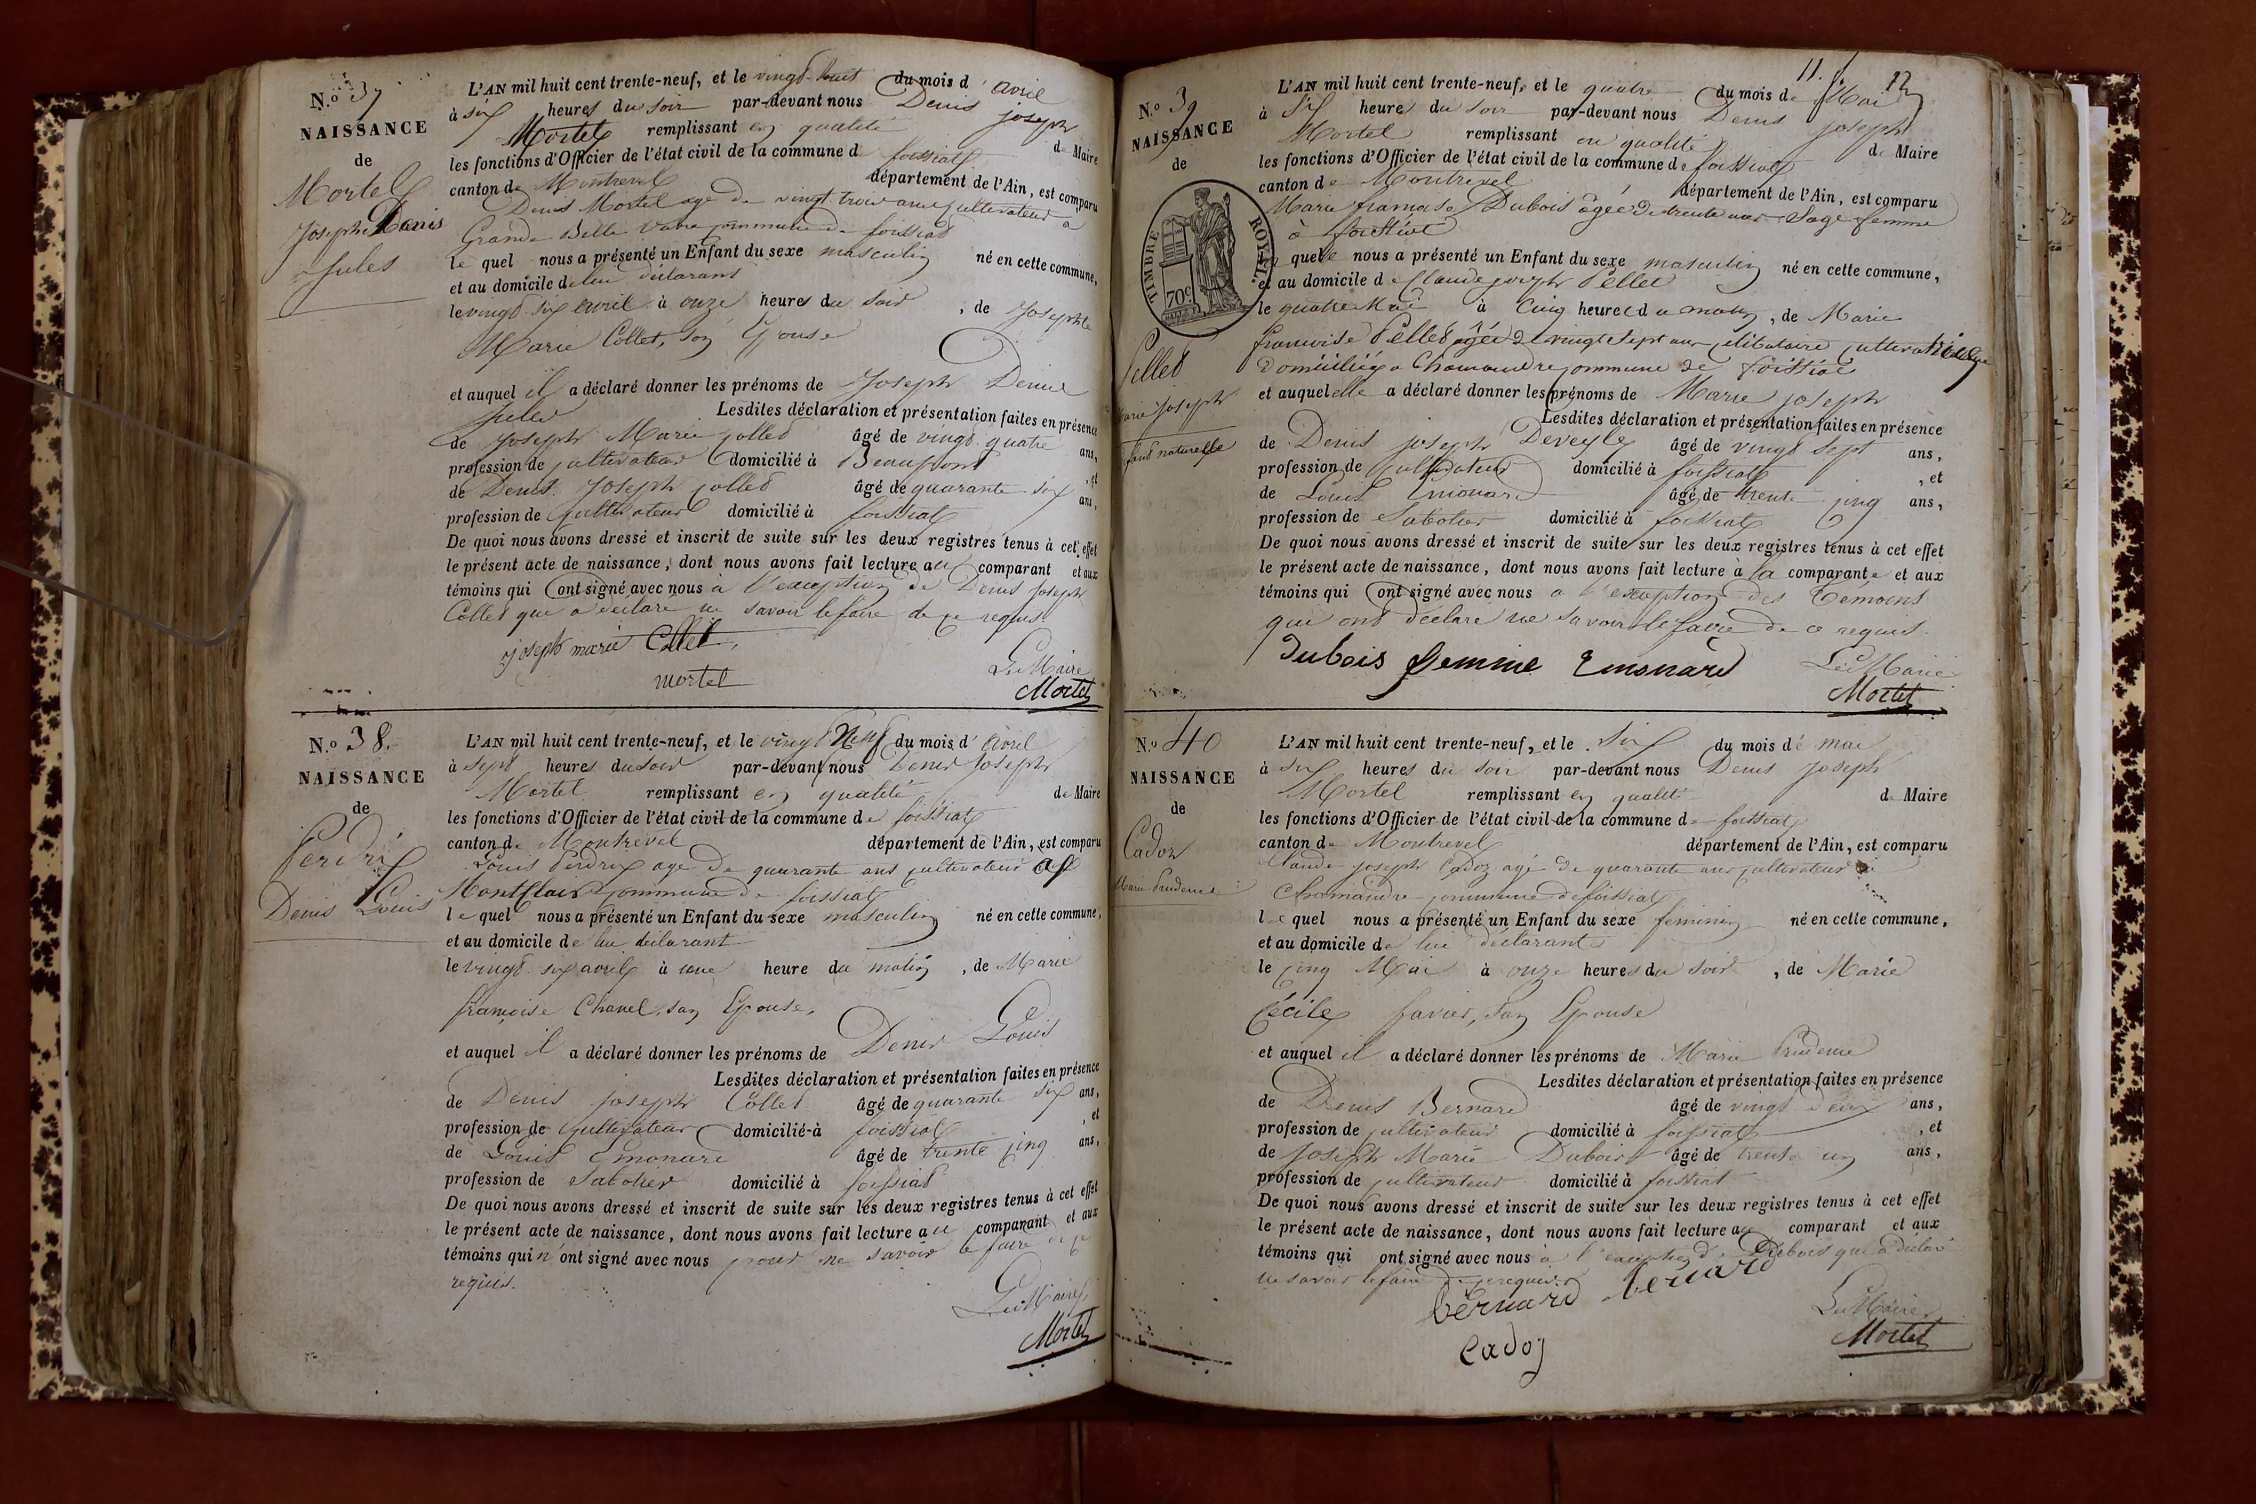 N.º 37
NAISSANCE
de
Mortel
Joseph Denis
Jules
L'AN mil huit cent trente-neuf, et le vingt huit du mois d'avril
à six heures du soir par-devant nous Denis joseph
Mortel remplissant en qualité de Maire
les fonctions d'Officier de l'état civil de la commune de foissiat
canton de Montrevel département de l'Ain, est comparu
Denis Mortel age de vingt trois ans cultivateur à
Grande commune de foissiat
le quel nous a présenté un Enfant du sexe masculin né en cette commune,
et au domicile de lui déclarant
le vingt six avril à onze heures du soir, de Josephte
Marie Collet, son Epouse
et auquel il a déclaré donner les prénoms de Joseph Denis
Jules Lesdites déclaration et présentation faites en présence
de Joseph Marie Collet âgé de vingt quatre ans,
profession de cultivateur domicilié à Beaupont, et
de Denis Joseph Collet âgé de quarante six ans,
profession de cultivateur domicilié à foissiat
De quoi nous avons dressé et inscrit de suite sur les deux registres tenus à cet effet
le présent acte de naissance, dont nous avons fait lecture au comparant et aux
témoins qui ont signé avec nous à l'exception de Denis Joseph
Collet que a declare ne savoir le faire de ce requis
joseph marie Collet
mortel
Le Maire
Mortel
N.º 38.
NAISSANCE
de
Perdrix
Denis Louis
L'AN mil huit cent trente-neuf, et le vingt Neuf du mois d'avril
à sept heures du soir par-devant nous Denis Joseph
Mortel remplissant en qualité de Maire
les fonctions d'Officier de l'état civil de la commune de foissiat
canton de Montrevel département de l'Ain, est comparu
Louis Perdrix age de quarante ans cultivateur a
Montclair commune de foissiat
le quel nous a présenté un Enfant du sexe masculin né en cette commune,
et au domicile de lui déclarant
le vingt six avril à une heure du matin, de Marie
françoise Chanel, son Epouse,
et auquel il a déclaré donner les prénoms de Denis Louis
Lesdites déclaration et présentation faites en présence
de Denis Joseph Collet âgé de quarante six ans,
profession de Cultivateur domicilié à foissiat, et
de Louis Emonard âgé de trente cinq ans,
profession de Sabotier domicilié à foissiat
De quoi nous avons dressé et inscrit de suite sur les deux registres tenus à cet effet
le présent acte de naissance, dont nous avons fait lecture au comparant et aux
témoins qui n'ont signé avec nous pour ne savoir le faire de ce
requis.
Le Maire
Mortel
11. 12
N.º 39
NAISSANCE
de
TIMBRE ROYAL
70c
Pellet
Marie Joseph
enfant naturelle
L'AN mil huit cent trente-neuf, et le quatre du mois de Mai
à six heures du soir par-devant nous Denis Joseph
Mortel remplissant en qualité de Maire
les fonctions d'Officier de l'état civil de la commune de foissiat
canton de Montrevel département de l'Ain, est comparu
Marie françoise Dubois âgée de trente Sage femme
à foissiat
la quelle nous a présenté un Enfant du sexe masculin né en cette commune,
et au domicile de Claude joseph Pellet
le quatre Mai à Cinq heures du matin, de Marie
françoise Pellet âgée de vingt sept ans célibataire cultivatrice
domiciliée a Chamandre commune de foissiat
et auquel elle a déclaré donner les prénoms de Marie joseph
Lesdites déclaration et présentation faites en présence
de Denis joseph Deveyle âgé de vingt sept ans,
profession de cultivateur domicilié à foissiat, et
de Louis Emonard âgé de trente cinq ans,
profession de Sabotier domicilié à foissiat
De quoi nous avons dressé et inscrit de suite sur les deux registres tenus à cet effet
le présent acte de naissance, dont nous avons fait lecture à la comparante et aux
témoins qui ont signé avec nous a l'exception des Témoins
qui ont déclaré ne savoir le faire de ce requis.
Dubois femme Emonard
Le Maire
Mortel
N.º 40
NAISSANCE
de
Cadoz
Marie Prudence
L'AN mil huit cent trente-neuf, et le Six du mois de mai
à six heures du soir par-devant nous Denis Joseph
Mortel remplissant en qualité de Maire
les fonctions d'Officier de l'état civil de la commune de foissiat
canton de Montrevel département de l'Ain, est comparu
Claude joseph Cadoz agé de quarante ans cultivateur a
Chamandre commune de foissiat
le quel nous a présenté un Enfant du sexe feminin né en cette commune,
et au domicile de lui déclarant
le cinq Mai à onze heures du soir, de Marie
Cécile favier, son Epouse
et auquel il a déclaré donner les prénoms de Marie Prudence
Lesdites déclaration et présentation faites en présence
de Denis Bernard âgé de vingt deux ans,
profession de cultivateur domicilié à foissiat, et
de Joseph Marie Dubois âgé de trente un ans,
profession de cultivateur domicilié à foissiat
De quoi nous avons dressé et inscrit de suite sur les deux registres tenus à cet effet
le présent acte de naissance, dont nous avons fait lecture au comparant et aux
témoins qui ont signé avec nous à l'exception de Dubois qui a déclaré
ne savoir le faire de ce requis
bernard bernard
Cadoz
Le Maire
Mortel